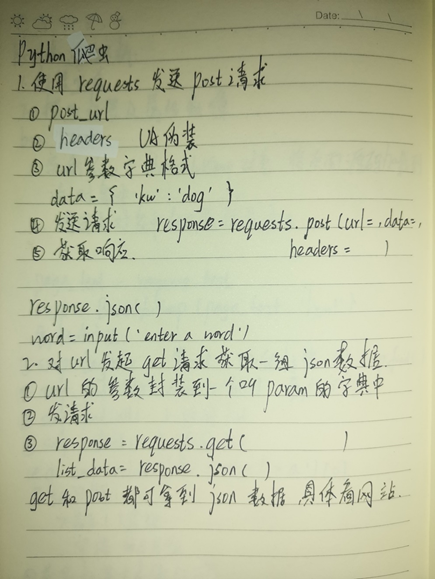 Date:
Python 爬虫
1. 使用 requests 发送 post 请求
① post_url
② headers UA伪装
③ url 参数字典格式
data = { 'kw' : 'dog' }
④ 发送请求 response = requests. post (url= , data= ,
⑤ 获取响应. headers = )
response. json( )
word = input ('enter a word')
2. 对 url 发起 get 请求 获取一组 json 数据.
① url 的参数封装到一个叫 param 的字典中
② 发请求
③ response = requests. get ( )
list_data = response. json ( )
get 和 post 都可拿到 json 数据 具体看网站.